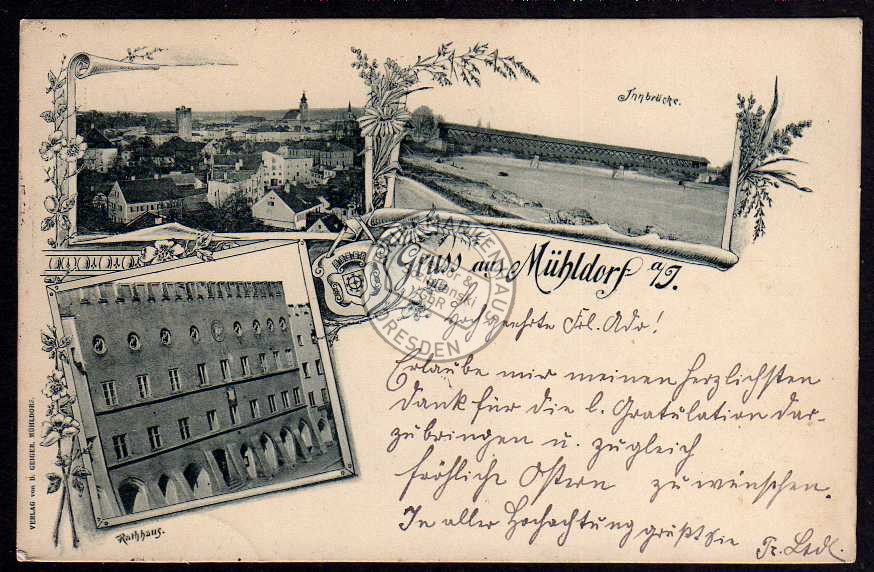 Innbrücke.
Gruss aus Mühldorf a/I.
Hochgeehrte Frl. Ado!
Erlaube mir meinen herzlichsten
Dank für die l. Gratulation dar-
zubringen u. zugleich
fröhliche Ostern zu wünschen.
In aller Hochachtung grüßt Sie
Rathhaus.
VERLAG von D. GEIGER, MÜHLDORF.
BRIEFMARKENHAUS
DRESDEN